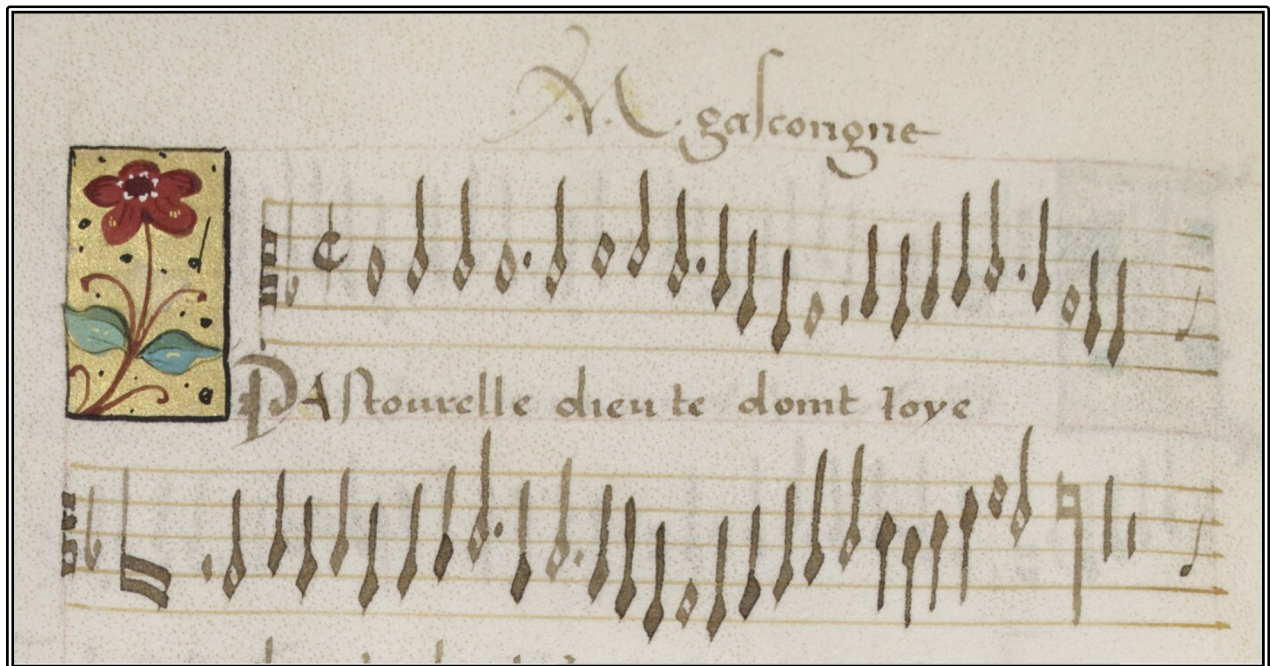 M. gascongne
PAstourelle dieu te doint Ioye